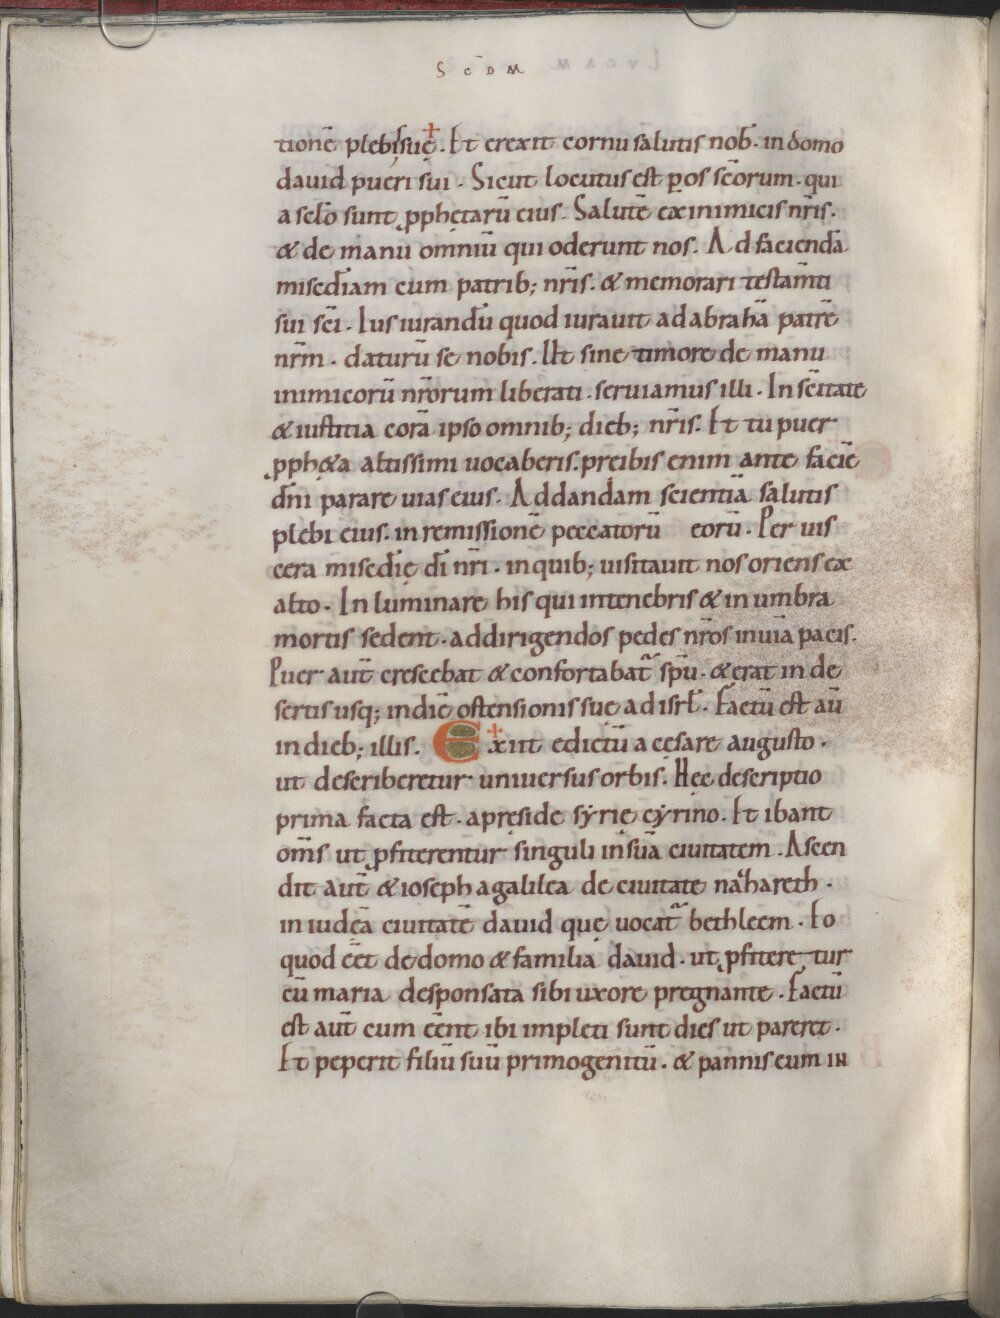 SCDM
tionē plebisuę. Et erexit cornu salutis nob̄. in domo
dauid pueri sui. Sicut locutus est ꝑ os scōrum. qui
a sclō sunt ꝓphetarū eius. Salutē ex inimicis nr̄is.
& de manu omniū qui oderunt nos. Ad faciendā
misc̄diam cum patrib; nr̄is. & memorari testam̄ti
sui sc̄i. Ius iurandū quod iurauit ad abrahā patrē
nr̄m. daturū se nobis. Ut sine timore de manu
inimicorū nr̄orum liberati. seruiamus illi. In sc̄itate
& iustitia corā ipso omnib; dieb; nr̄is. Et tu puer
ꝓph&a altissimi uocaberis. preibis enim ante faciē
dn̄i parare uias eius. Ad dandam scientiā salutis
plebi eius. in remissionē peccatorū eorū. Per uis
cera misc̄dię dī nr̄i. in quib; uisitauit nos oriens ex
alto. Inluminare his qui intenebris & in umbra
mortis sedent. ad dirigendos pedes nr̄os in uiā pacis.
Puer aut̄ crescebat & confortabat᷑ sp̄u. & erat in de
sertis usq; in diē ostensionis suę ad isrl̄. Factū est aū
in dieb; illis. Exiit edictū a cęsare augusto.
ut describeretur uniuersus orbis. Hęc descriptio
prima facta est. a pręside syrię cyrino. Et ibant
om̄s ut ꝓfiterentur singuli in suā ciuitatem. Ascen
dit aut̄ & ioseph a galilea de ciuitate nazhareth.
in iudęā ciuitatē dauid quę uocat᷑ bethleem. Eo
quod e&̄ de domo & familia dauid. ut ꝓfiteretur
cū maria desponsata sibi uxore pregnante. Factū
est aut̄ cum eēnt ibi impleti sunt dies ut pareret.
Et peperit filiū suū primogenitū. & pannis eum in